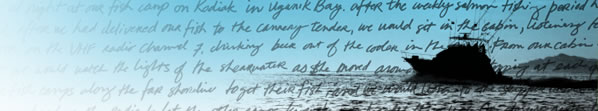 night at our fish camp on Kodiak in Uganik Bay. After the weekly salmon fishing period
After we had delivered our fish to the cannery tender, we would sit in the cabin, listening to
the VHF radio channel 7, drinking beer out of the cooler in the From our cabin
would watch the lights of the Shearwater as she moved around at
fish camps along the far shoreline to get their fish and we would listen to the